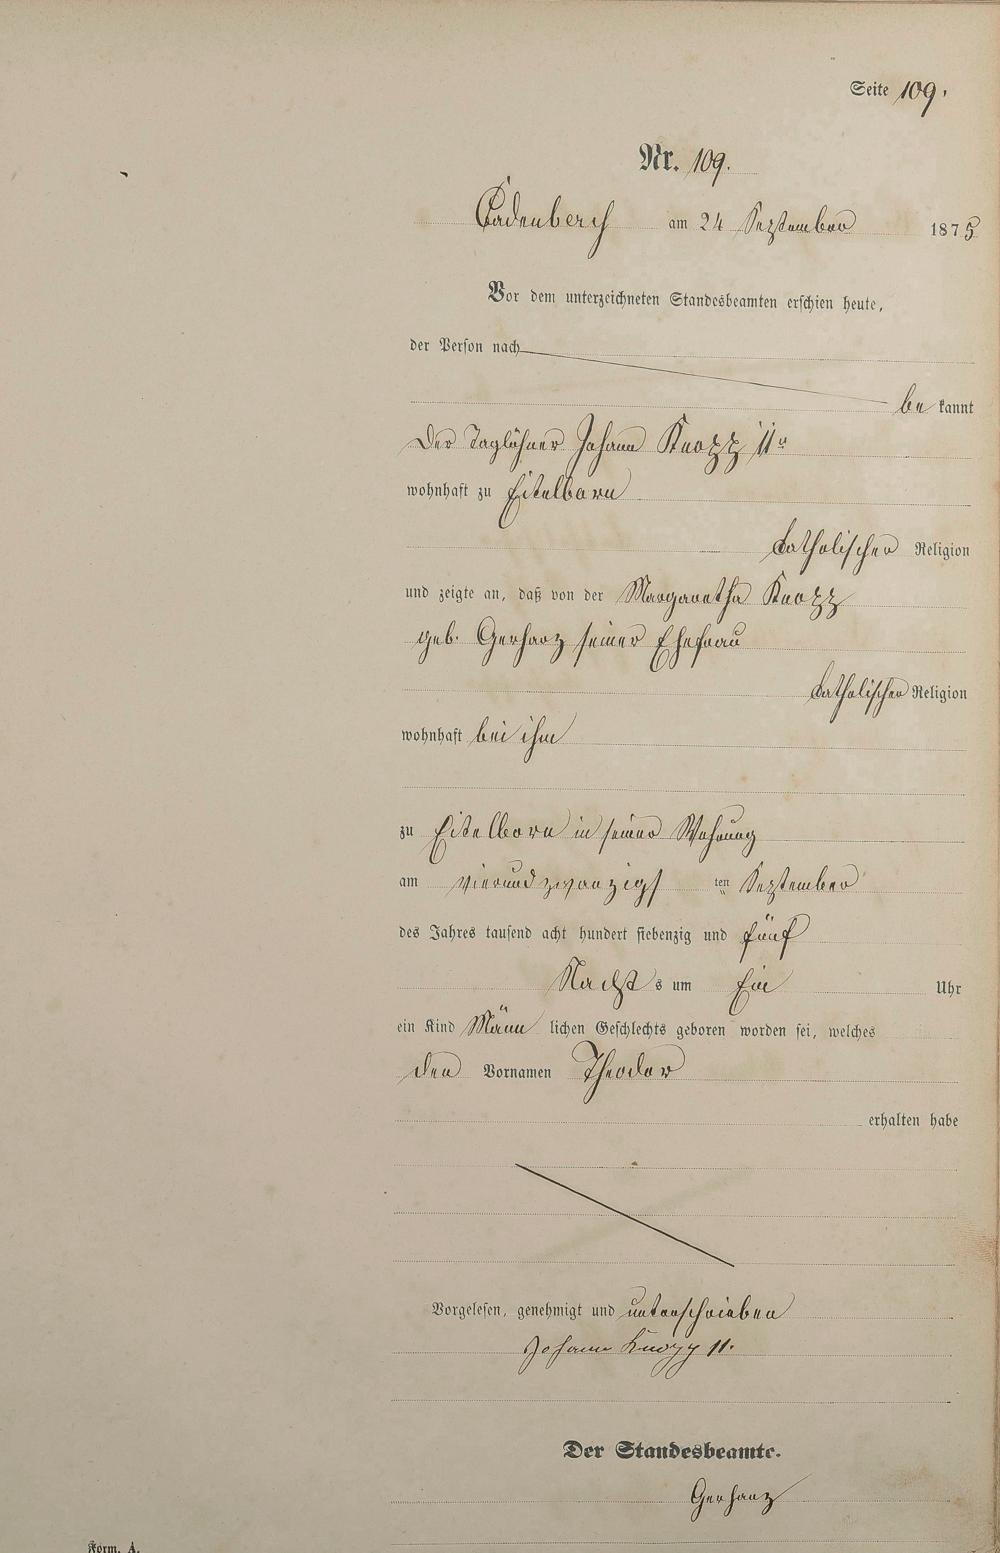 Seite 109.
Nr. 109.
Cadenbach am 24 September 1875
Vor dem unterzeichneten Standesbeamten erschien heute,
der Person nach
be kannt
Der Taglöhner Johann Knopp IIr
wohnhaft zu Eitelborn
katholischer Religion
und zeigte an, daß von der Margaretha Knopp
geb. Gerharz seiner Ehefrau
katholischer Religion
wohnhaft bei ihm
zu Eitelborn in seiner Wohnung
am vierundzwanzigs ten September
des Jahres tausend acht hundert siebenzig und fünf
Nacht s um Ein Uhr
ein Kind Männ lichen Geschlechts geboren worden sei, welches
den Vornamen Theodor
erhalten habe
Vorgelesen, genehmigt und unterschrieben
Johann Knopp II.
Der Standesbeamte.
Gerharz
Form. A.